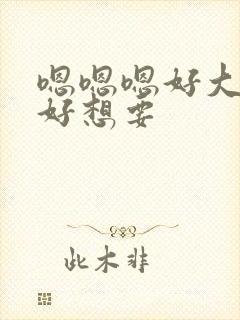 嗯嗯嗯好大
好想要
此木非